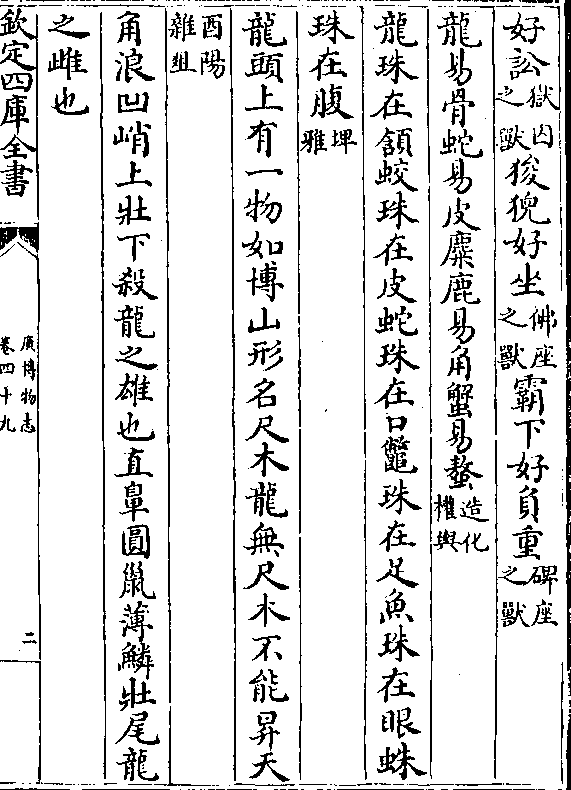 好訟獄囚之獸狻猊好坐佛座之獸霸下好負重碑座之獸
龍易骨蛇易皮麋鹿易角蟹易螯造化權輿
龍珠在頷蛟珠在皮蛇珠在口鼈珠在足魚珠在眼蛛
珠在腹埤雅
龍頭上有一物如博山形名尺木龍無尺木不能昇天
酉陽雜俎
角浪凹峭上壯下殺龍之雄也直鼻圓鬛薄鱗壯尾龍
之雌也
欽定四庫全書
廣博物志
卷四十九
二